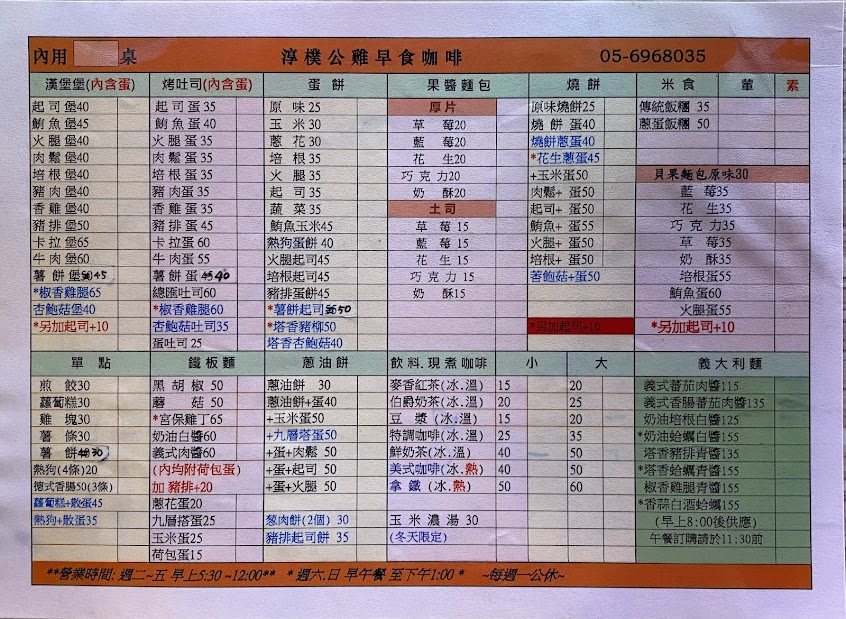 內用 桌 淳樸公雞早食咖啡 05-6968035
漢堡堡(內含蛋) 烤吐司(內含蛋) 蛋餅 果醬麵包 燒餅 米食 葷 素
起司堡40 起司蛋35 原味25 厚片 原味燒餅25 傳統飯糰 35
鮪魚堡45 鮪魚蛋40 玉米30 草莓20 燒餅蛋40 蔥蛋飯糰 50
火腿堡40 火腿蛋35 蔥花30 藍莓20 燒餅蔥蛋40
肉鬆堡40 肉鬆蛋35 培根35 花生20 *花生蔥蛋45
培根堡40 培根蛋35 火腿35 巧克力20 +玉米蛋50 貝果麵包原味30
豬肉堡40 豬肉蛋35 起司35 奶酥20 肉鬆+蛋50 藍莓35
香雞堡40 香雞蛋35 蔬菜35 土司 起司+蛋50 花生35
豬排堡50 豬排蛋45 鮪魚玉米45 草莓15 鮪魚+蛋55 巧克力35
卡拉堡65 卡拉蛋60 熱狗蛋餅40 藍莓15 火腿+蛋50 草莓35
牛肉堡60 牛肉蛋55 火腿起司45 花生15 培根+蛋50 奶酥35
薯餅堡45 薯餅蛋40 培根起司45 巧克力15 杏鮑菇+蛋50 培根蛋55
*椒香雞腿65 總匯吐司60 豬排蛋餅45 奶酥15 鮪魚蛋60
杏鮑菇堡40 *椒香雞腿60 *薯餅起司50 火腿蛋55
*另加起司+10 杏鮑菇吐司35 *塔香豬柳50 *另加起司+10 *另加起司+10
蛋吐司25 塔香杏鮑菇40
單點 鐵板麵 蔥油餅 飲料.現煮咖啡 小 大 義大利麵
煎餃30 黑胡椒50 蔥油餅 30 麥香紅茶(冰.溫) 15 20 義式蕃茄肉醬115
蘿蔔糕30 蘑菇50 蔥油餅+蛋40 伯爵奶茶(冰.溫) 20 25 義式香腸蕃茄肉醬135
雞塊30 *宮保雞丁65 +玉米蛋50 豆漿(冰.溫) 15 20 奶油培根白醬125
薯條30 奶油白醬60 +九層塔蛋50 特調咖啡(冰.溫) 25 35 *奶油蛤蠣白醬155
薯餅30 義式肉醬60 +蛋+肉鬆50 鮮奶茶(冰.溫) 40 50 塔香豬排青醬135
熱狗(4條)20 (內均附荷包蛋) +蛋+起司50 美式咖啡(冰.熱) 40 50 *塔香蛤蠣青醬155
德式香腸50(3條) 加豬排+20 +蛋+火腿50 拿鐵(冰.熱) 50 60 椒香雞腿青醬155
蘿蔔糕+散蛋45 蔥花蛋20 *香蒜白酒蛤蠣155
熱狗+散蛋35 九層搭蛋25 蔥肉餅(2個) 30 玉米濃湯30 (早上8:00後供應)
玉米蛋25 豬排起司餅 35 (冬天限定) 午餐訂購請於11:30前
荷包蛋15
**營業時間: 週二~五 早上5:30 ~12:00** *週六.日 早午餐 至下午1:00* ~每週一公休~